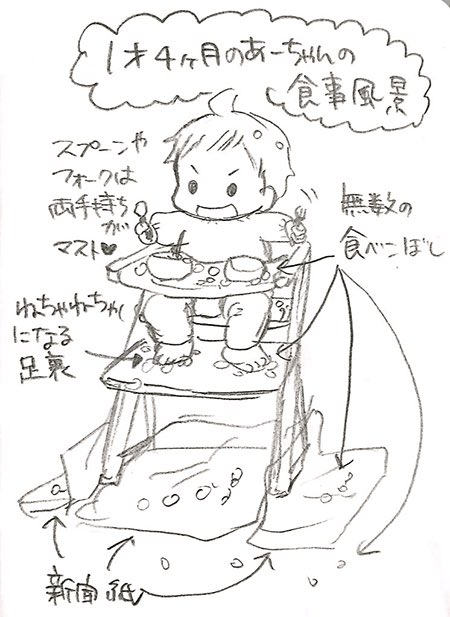 1才4ヶ月のあーちゃんの
食事風景
スプーンや
フォークは
両手持ち
が
マスト♥
無数の
食べこぼし
ねちゃねちゃ
になる
足裏
新聞紙